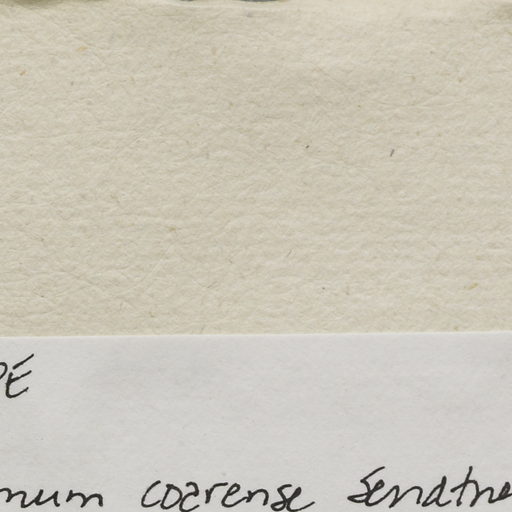 PE
num coarense Sendtne